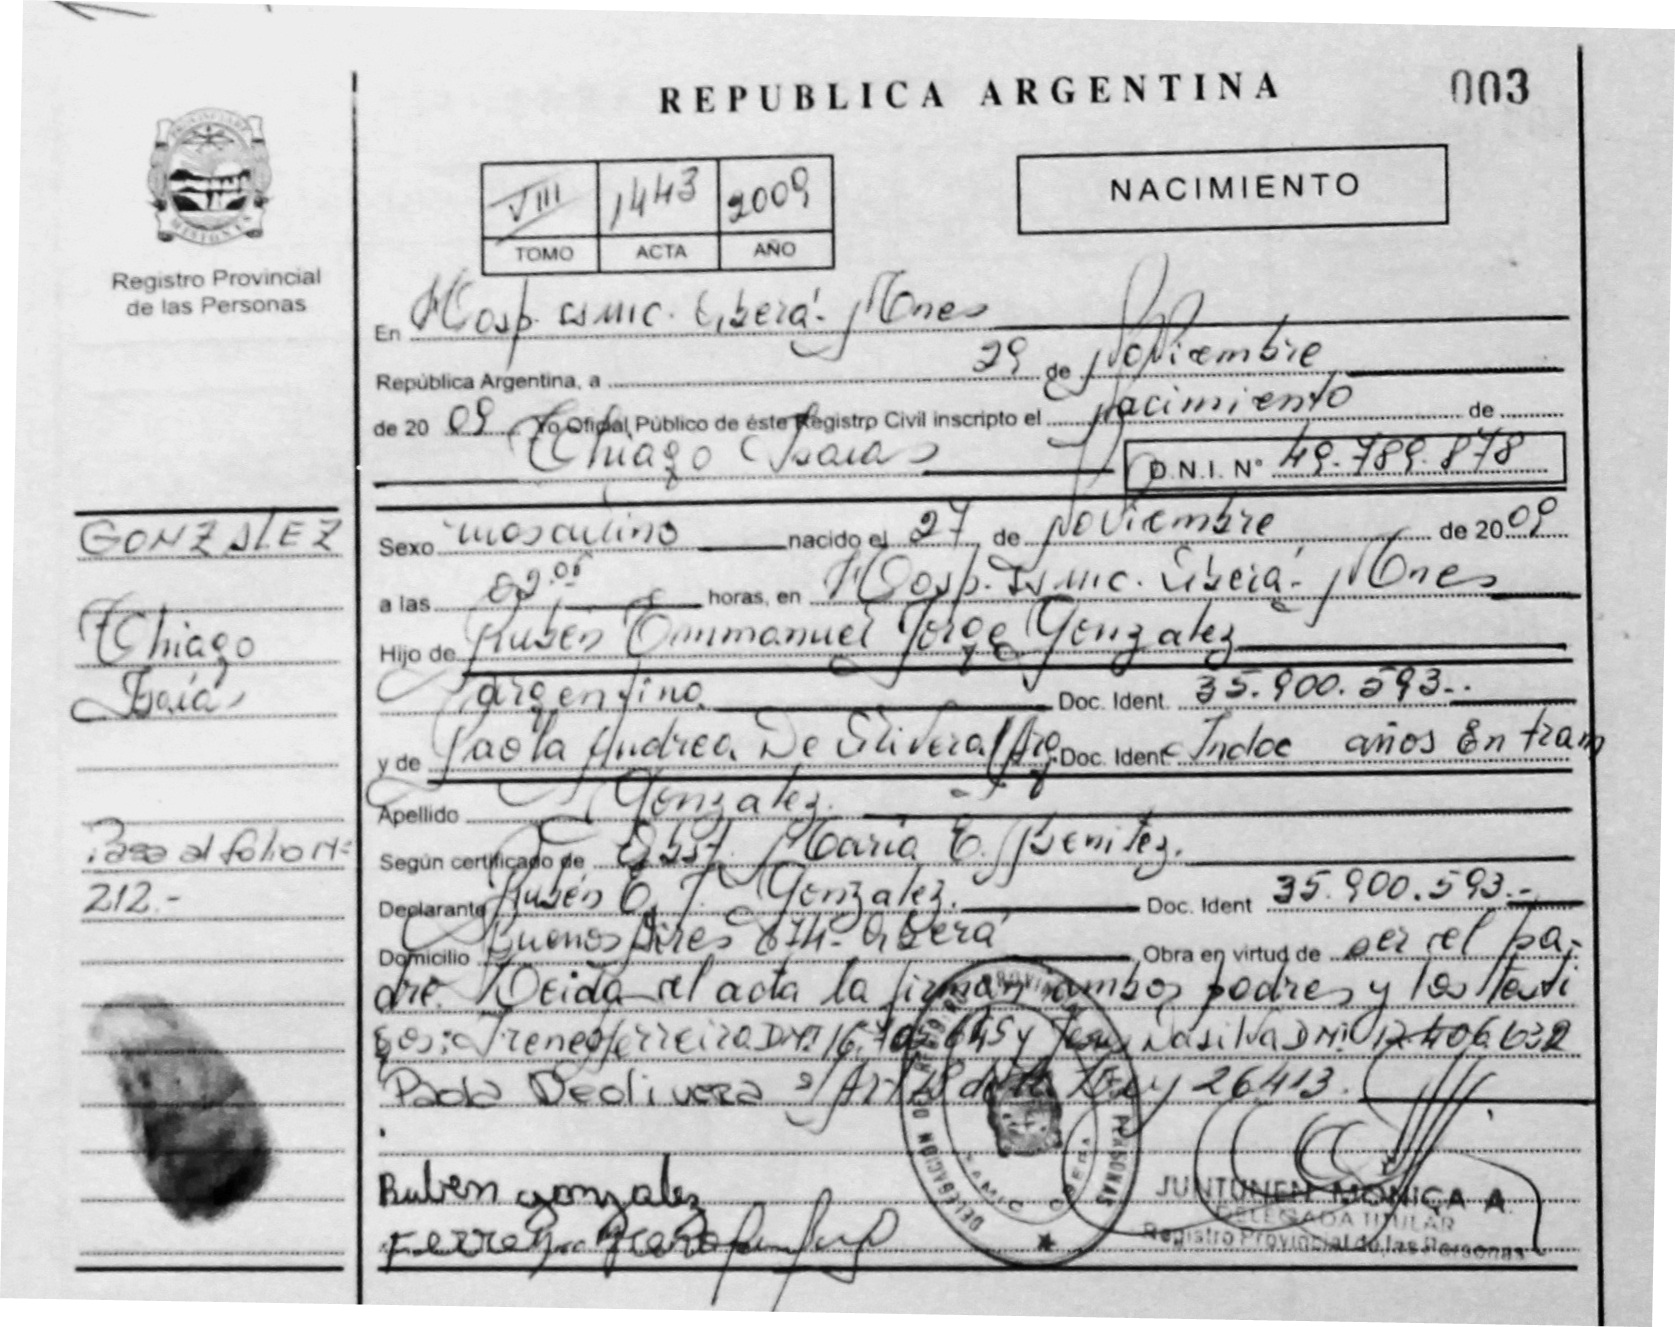 REPUBLICA ARGENTINA
003
NACIMIENTO
VIII 1443 2009
TOMO ACTA AÑO
Registro Provincial
de las Personas
En Hosp. Oberá - Mnes
República Argentina, a 29 de Noviembre
de 20 09 Yo Oficial Público de éste Registro Civil inscripto el nacimiento de
Thiago Isaías D.N.I. N° 49.789.878
GONZALEZ
Thiago
Isaías
Sexo masculino nacido el 27 de Noviembre de 20 09
a las horas, en Hosp. Oberá - Mnes
Hijo de Rubén Emmanuel Jorge Gonzalez
argentino Doc. Ident. 35.900.593.-
y de Paola Andrea De Olivera / Arg. Doc. Ident. Indoc años En tram
Apellido Gonzalez.
Según certificado de Obst. María E. Benitez.
Pasa al folio N°
212.-
Declarante Rubén E. J. Gonzalez. Doc. Ident 35.900.593.-
Domicilio Buenos Aires - Oberá Obra en virtud de ser el pa-
dre. Leida el acta la firman ambos padres y los testi
gos: Irene Ferreira DNI. y Dasilva DNI.
Paola Deolivera s/Art. de la Ley 26413.
REGISTRO PROVINCIAL DE LAS PERSONAS
DELEGACION
OBERA
Ruben gonzalez
JUNTUNEN MONICA A.
DELEGADA TITULAR
Registro Provincial de las Personas